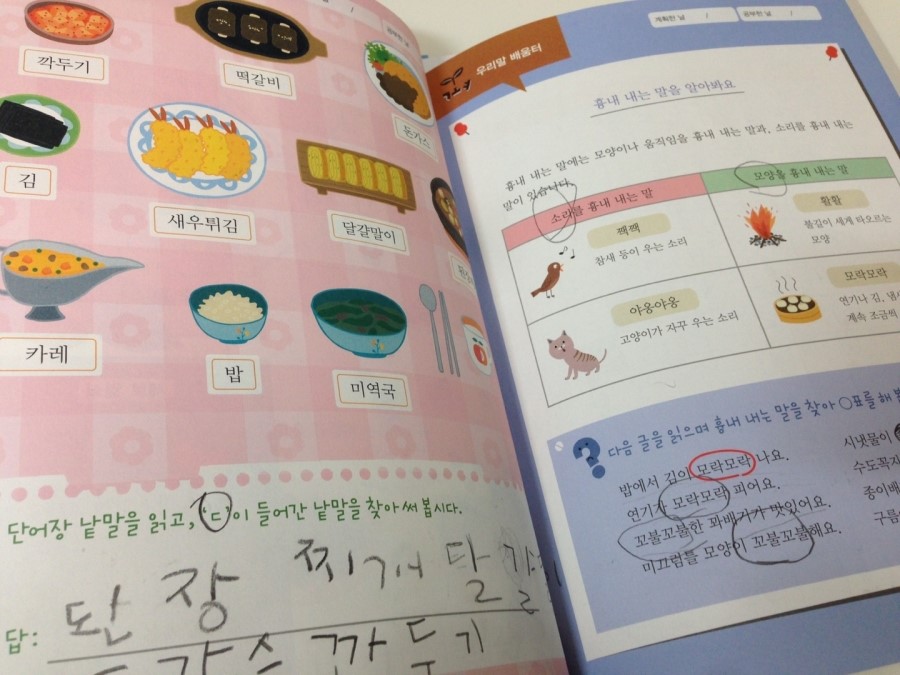 공부한 날 /
깍두기
떡갈비
돈가스
김
새우튀김
달걀말이
카레
밥
미역국
단어장 낱말을 읽고, 'ㄷ'이 들어간 낱말을 찾아 써 봅시다.
답:
된장 찌개 달걀
돈가스 깍두기
계획한 날 /
공부한 날 /
우리말 배움터
흉내 내는 말을 알아봐요
흉내 내는 말에는 모양이나 움직임을 흉내 내는 말과, 소리를 흉내 내는
말이 있습니다.
소리를 흉내 내는 말
모양을 흉내 내는 말
짹짹
참새 등이 우는 소리
활활
불길이 세게 타오르는
모양
야옹야옹
고양이가 자꾸 우는 소리
모락모락
연기나 김, 냄
계속 조금씩
다음 글을 읽으며 흉내 내는 말을 찾아 ○표를 해
밥에서 김이 모락모락 나요.
연기가 모락모락 피어요.
꼬불꼬불한 꽈배기가 맛있어요.
미끄럼틀 모양이 꼬불꼬불해요.
시냇물이
수도꼭지
종이배
구름